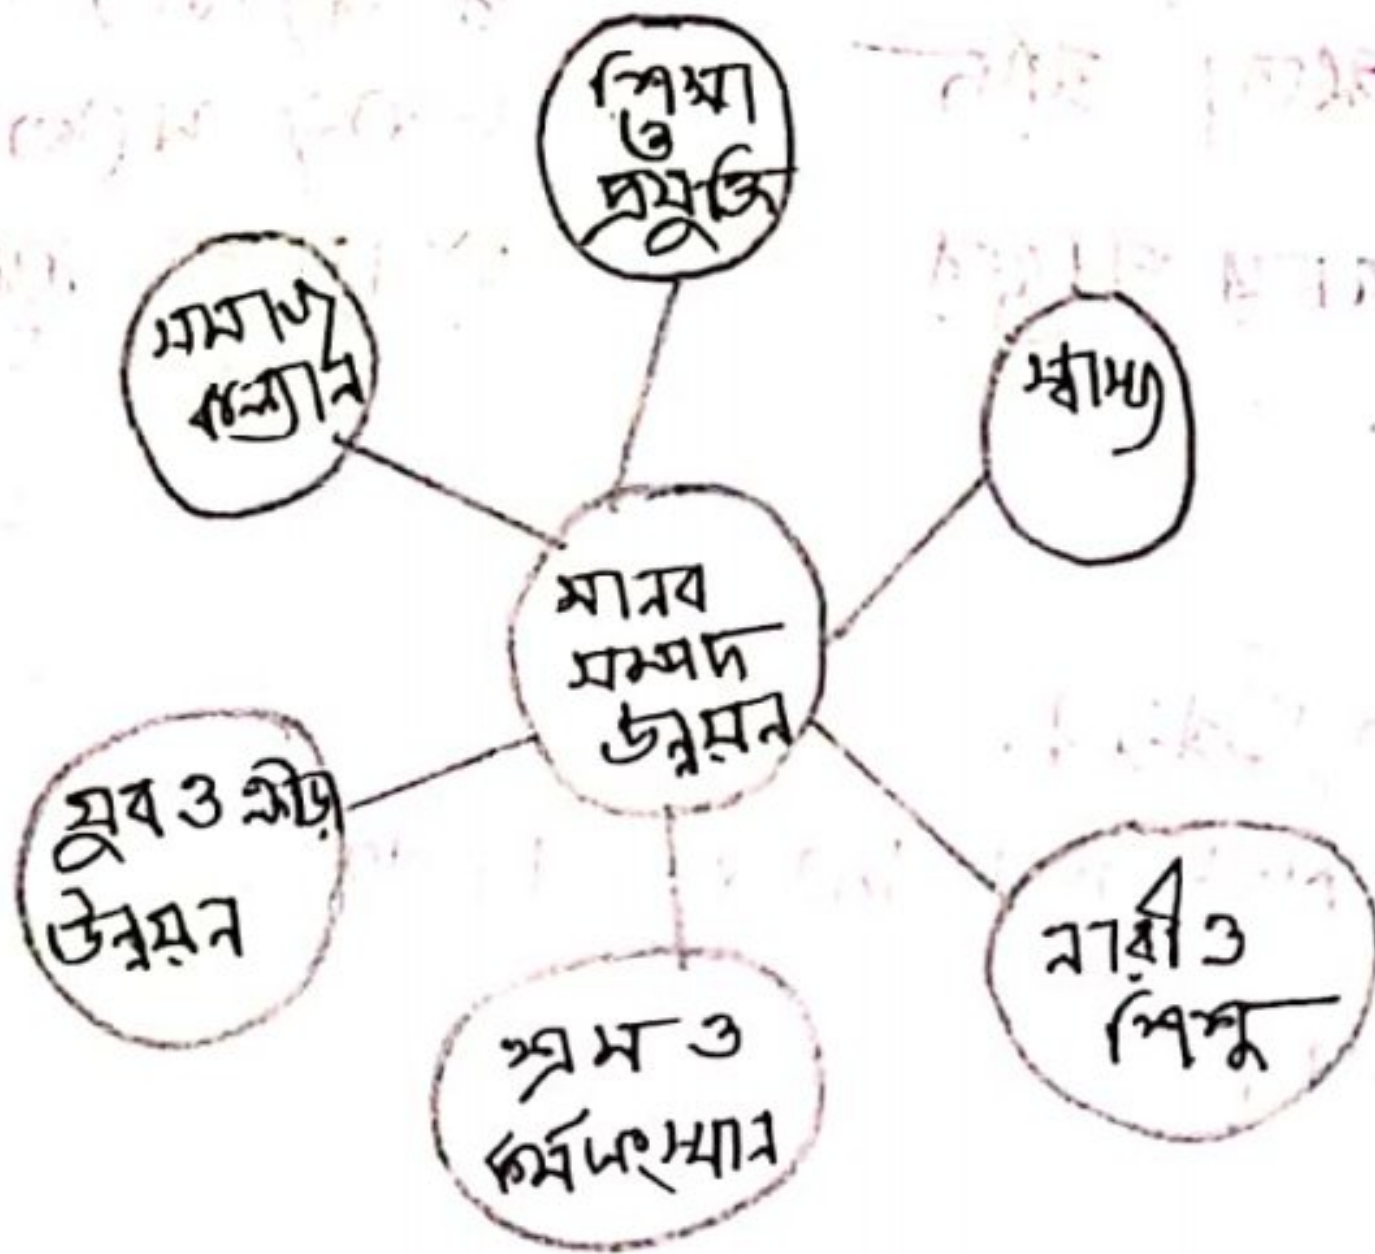 শিক্ষা
ও
প্রযুক্তি
সমাজ
কল্যান
স্বাস্থ্য
মানব
সম্পদ
উন্নয়ন
যুব ও ক্রীড়া
উন্নয়ন
নারী ও
শিশু
শ্রম ও
কর্মসংস্থান